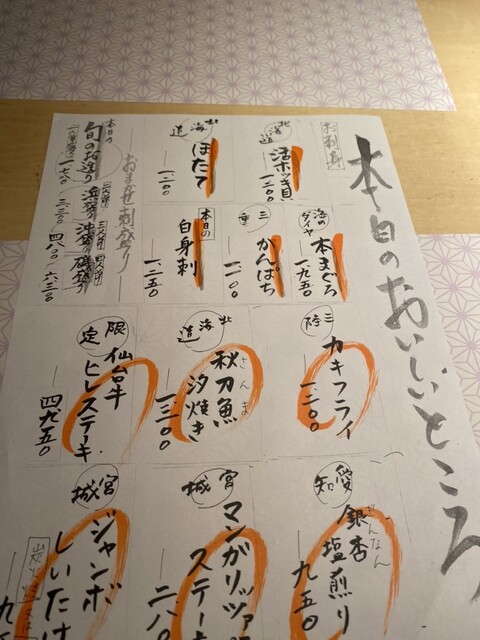 本日のおいしいところ
お刺身
北海道
活ホッキ貝
一二〇〇
北海道
ほたて
一一二〇
本日の
おまかせ刺盛り
旬のお造り
一七八〇
浜盛り
三二三〇
沖盛り
四八〇〇
磯盛り
六三〇〇
海のダイヤ
本まぐろ
一九五〇
三重
かんぱち
一一〇〇
本日の
白身刺
一二五〇
三陸
カキフライ
一二〇〇
北海道
さんま
秋刀魚
汐焼き
一三〇〇
限定
仙台牛
ヒレステーキ
四九五〇
愛知
ぎんなん
銀杏
塩煎り
九五〇
宮城
マンガリッツァ
ステーキ
二八〇
宮城
ジャンボ
しいたけ